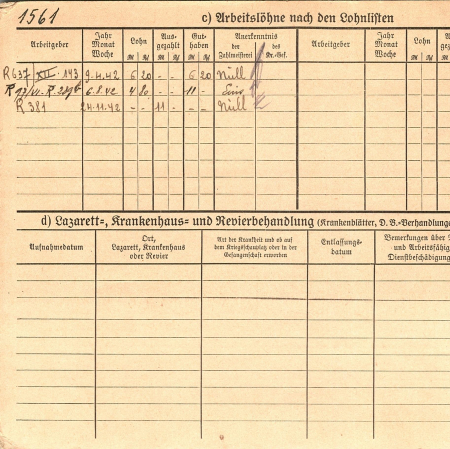 1561
c) Arbeitslöhne nach den Lohnlisten
Arbeitgeber Jahr Monat Woche Lohn ℛℳ ₰ Ausgezahlt Guthaben Anerkenntnis der Zahlmeisterei des Kr.-Gef. Arbeitgeber Jahr Monat Woche Lohn
R 637 XII 143 9.4.42 6 20 - - 6 20 Nüll
6.8.42 4 80 - - 11 -
R 381 24.11.42 - - 11 - - - Nüll
d) Lazarett-, Krankenhaus- und Revierbehandlung (Krankenblätter, D. B.-Verhandlung
Aufnahmedatum Ort, Lazarett, Krankenhaus oder Revier Art der Krankheit und ob auf dem Kriegsschauplatz oder in der Gefangenschaft erworben Entlassungs-datum Bemerkungen über und Arbeitsfähig Dienstbeschädigung